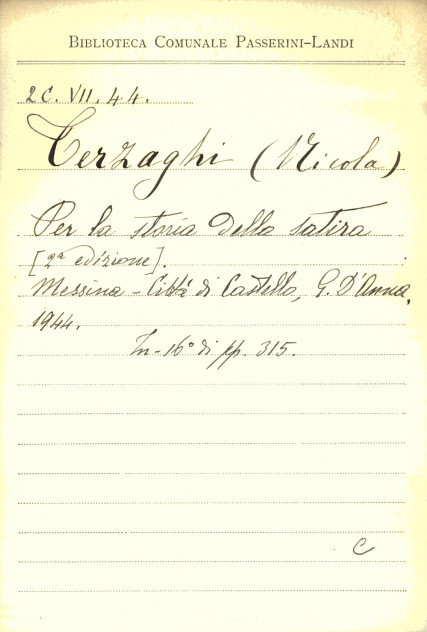 BIBLIOTECA COMUNALE PASSERINI-LANDI
2C. VII. 44.
Terzaghi (Nicola)
Per la storia della satira
[2ª edizione].
Messina - Città di Castello, G. D'Anna,
1944.
In-16° di pp. 315.
C